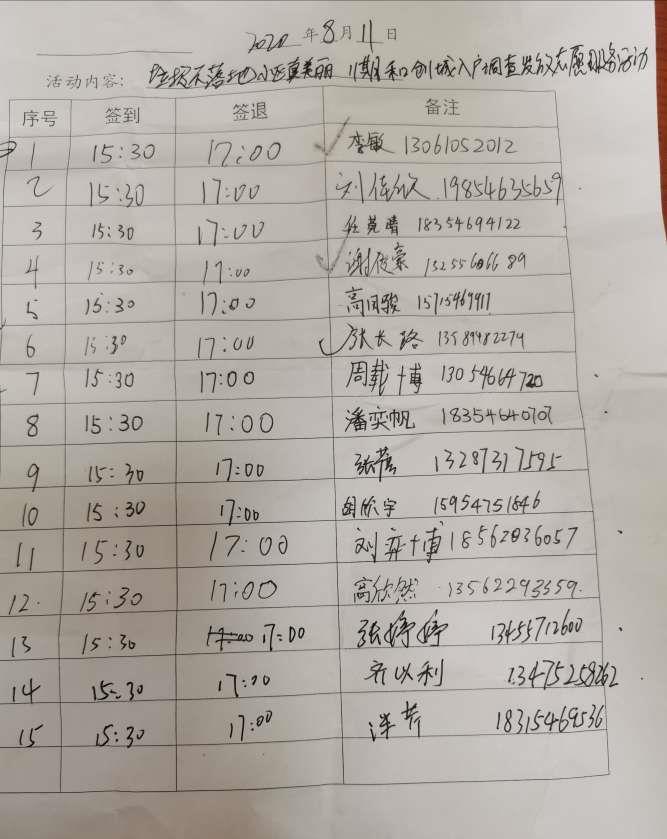 2020 年 8 月 11 日
活动内容: 垃圾不落地 小区真美丽 11期 和创城入户调查发放志愿服务活动
序号 签到 签退 备注
1 15:30 17:00 ✓ 李敏 13061052012
2 15:30 17:00 刘倍欣 19854635659
3 15:30 17:00 任苑晴 18354694122
4 15:30 17:00 ✓ 谢俊豪 13255606689
5 15:30 17:00 高日骏 15715469911
6 15:30 17:00 ✓ 张长路 13589982274
7 15:30 17:00 周载博 13054664720
8 15:30 17:00 潘奕帆 18354640707
9 15:30 17:00 13287317595
10 15:30 17:00 15954751846
11 15:30 17:00 刘弈博 18562036057
12. 15:30 17:00 高欣然 13562293559
13 15:30 17:00 17:00 张婷婷 13455712600
14 15:30 17:00 齐以利 13475258262
15 15:30 17:00 18315469536